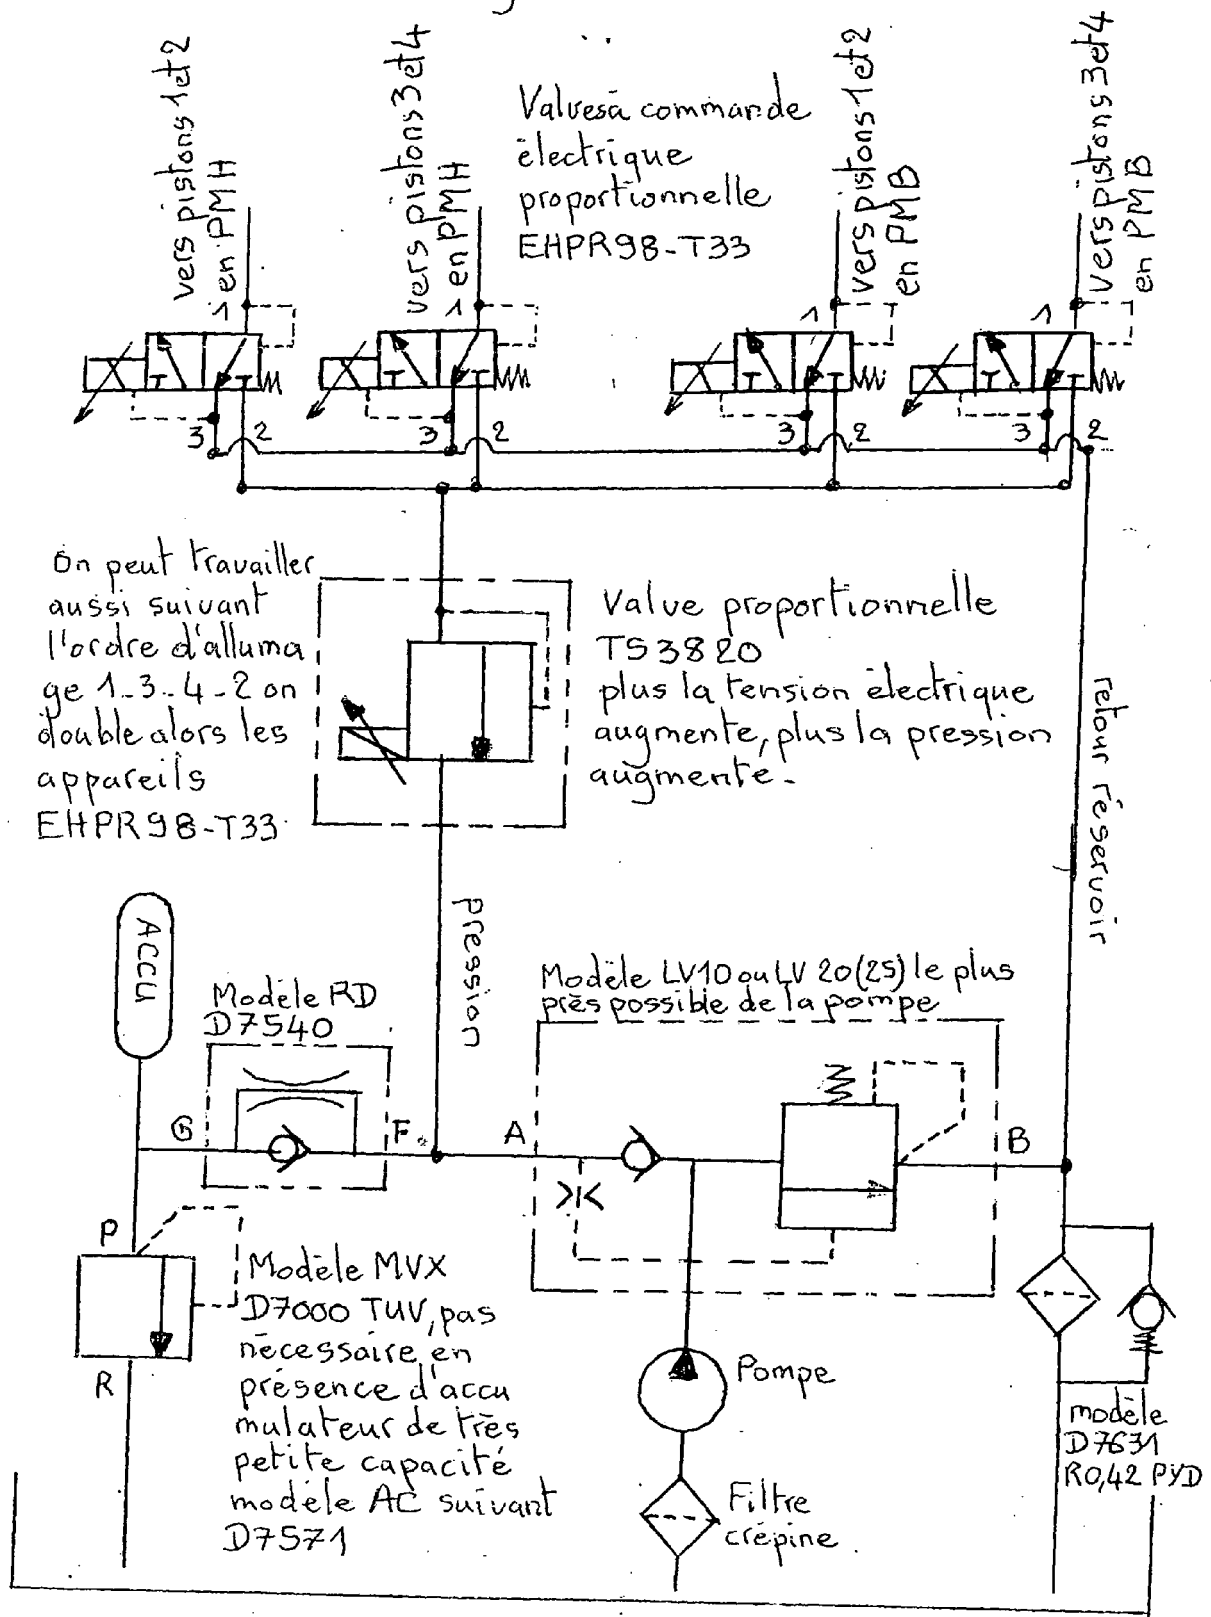 vers pistons 1et2
en PMH
vers pistons 3et4
en PMH
Valvesà commande
électrique
proportionnelle
EHPR98-T33
vers pistons 1et2
en PMB
vers pistons 3et4
en PMB
1
1
1
1
3
2
3
2
3
2
3
2
On peut travailler
aussi suivant
l'ordre d'alluma
ge 1-3-4-2 on
double alors les
appareils
EHPR98-T33
Valve proportionnelle
TS3820
plus la tension électrique
augmente, plus la pression
augmente-
retour réservoir
pression
ACCU
Modèle RD
D7540
Modèle LV10 ou LV 20(25) le plus
près possible de la pompe
G
F
A
B
P
R
Modèle MVX
D7000 TUV, pas
nécessaire en
présence d'accu
mulateur de très
petite capacité
modèle AC suivant
D7571
Pompe
Filtre
crépine
modèle
D7631
R0,42 PYD